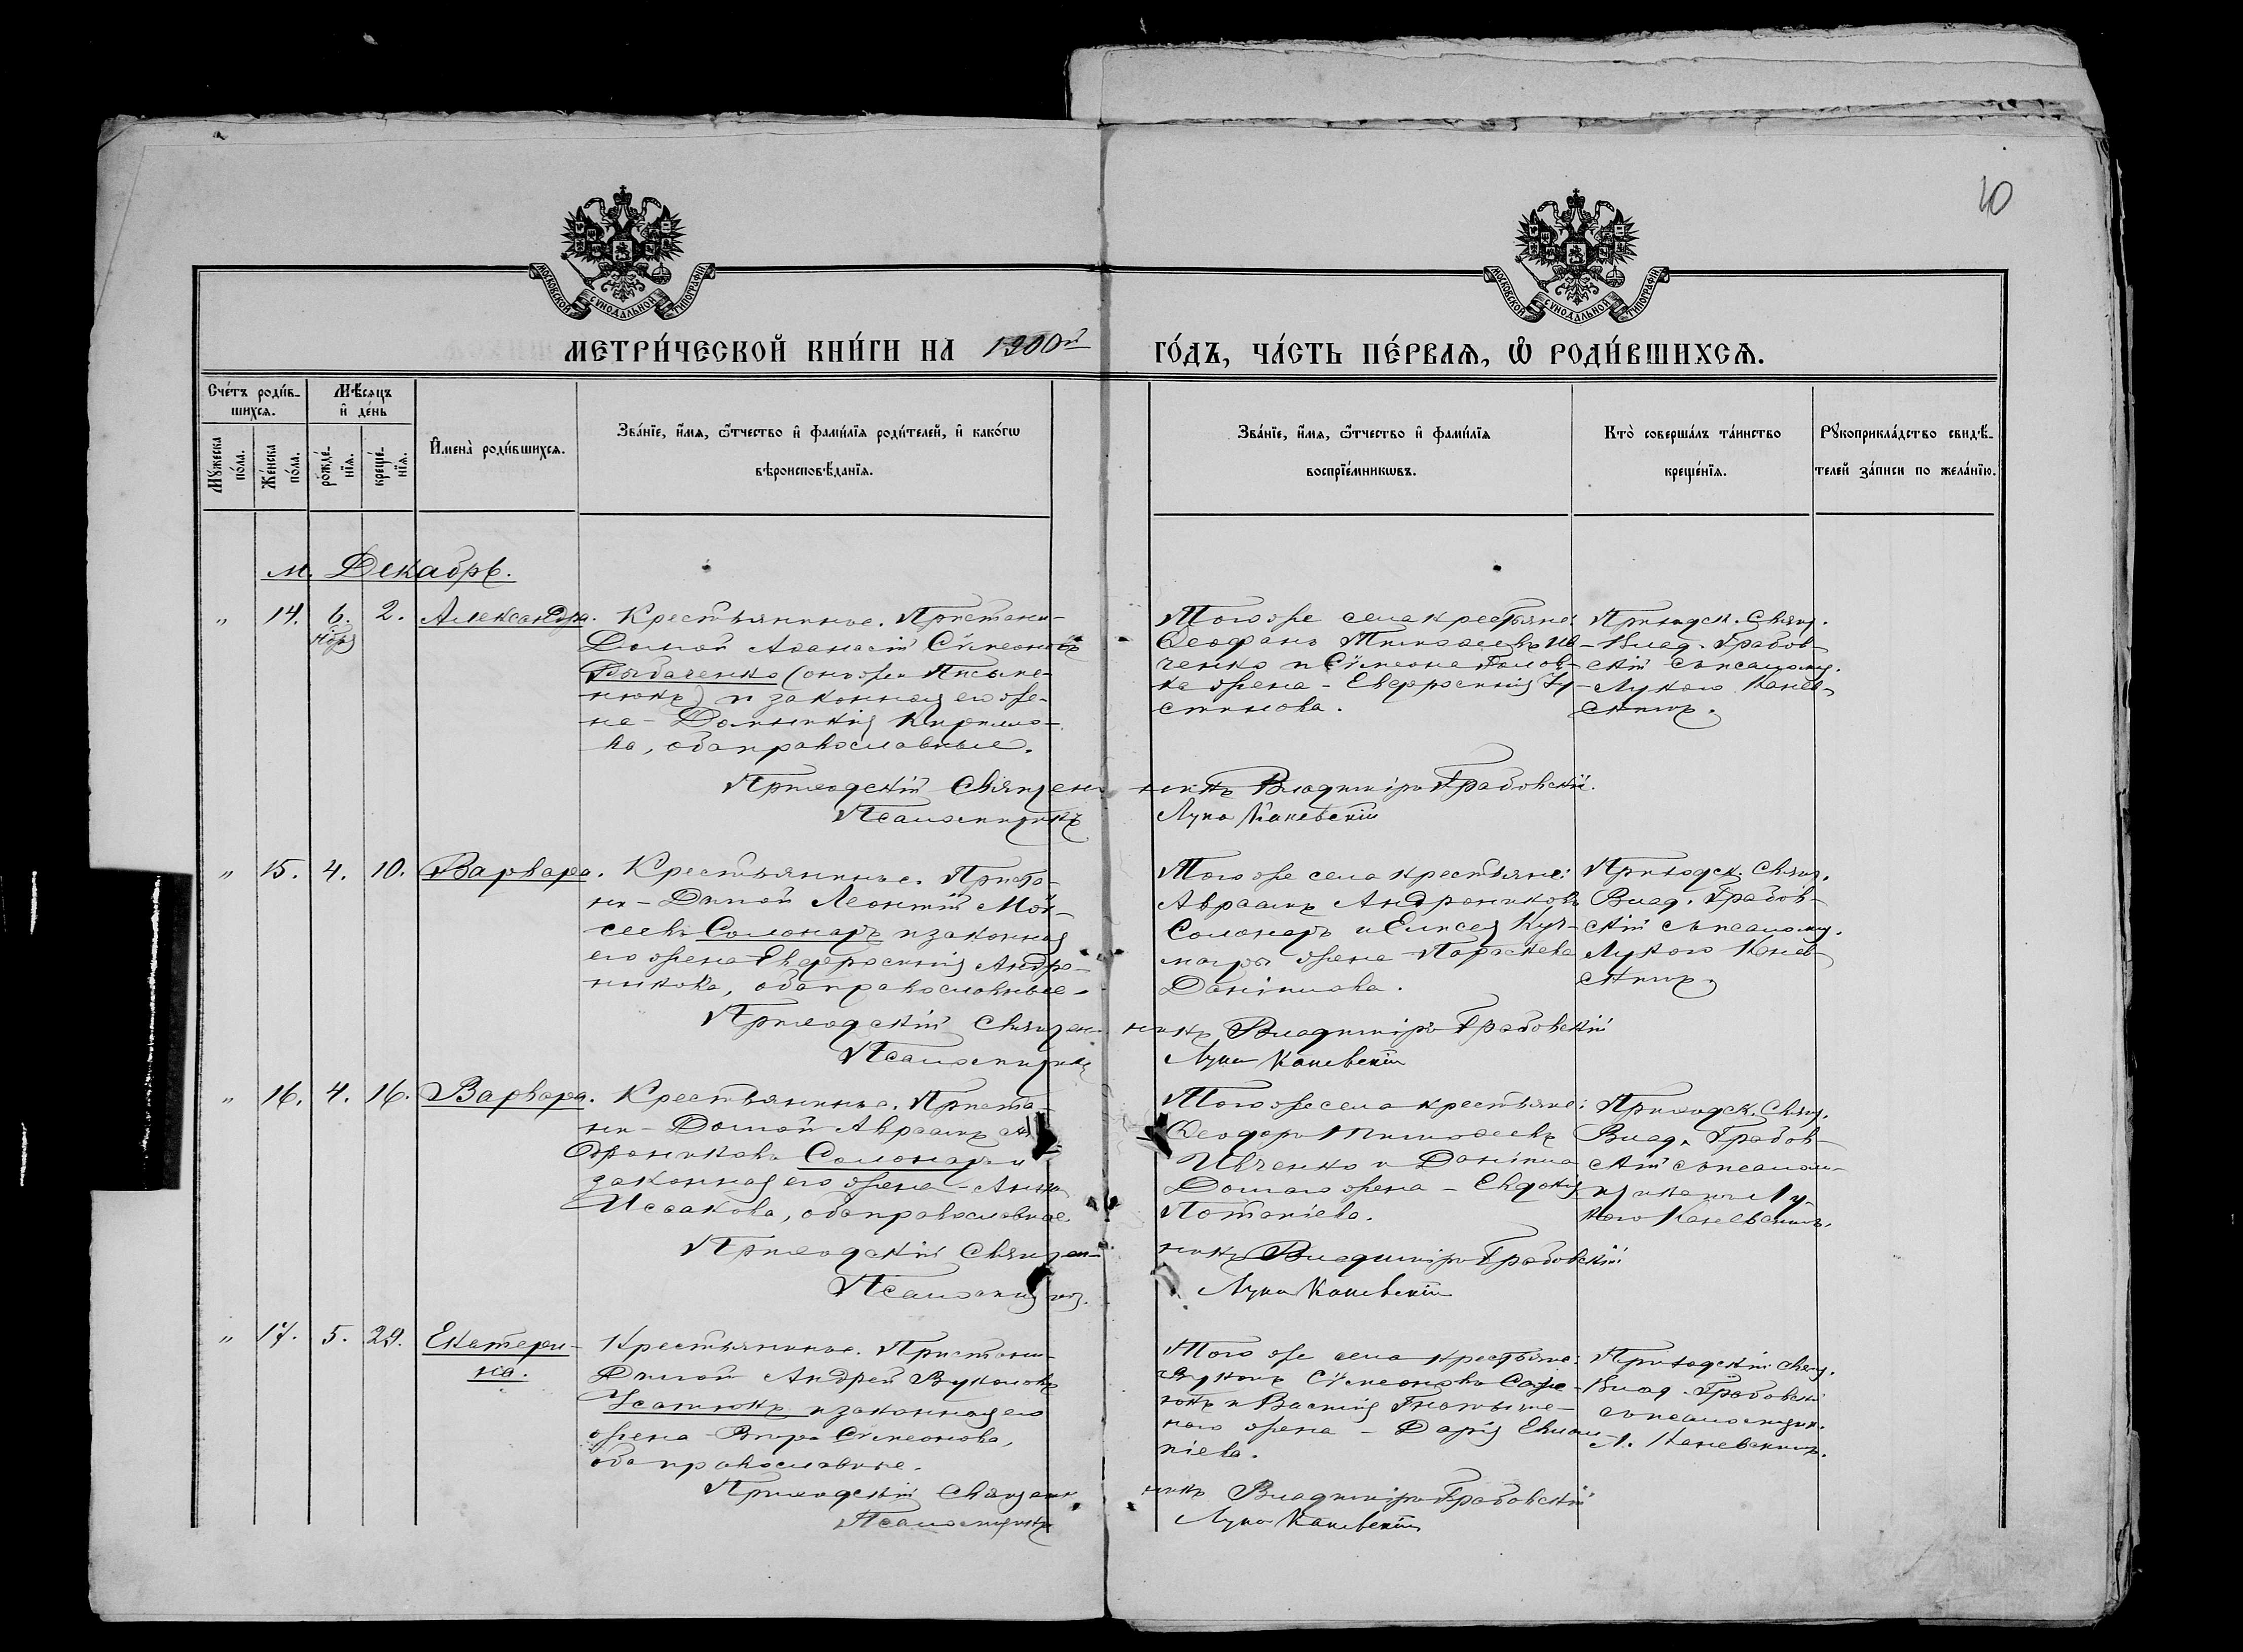 10
МОСКОВСКОЙ СѴНОДАЛЬНОЙ ТИПОГРАФІИ
МОСКОВСКОЙ СѴНОДАЛЬНОЙ ТИПОГРАФІИ
МЕТРИ́ЧЕСКОЙ КНИ́ГИ НА 1900й ГО́ДЪ, ЧА́СТЬ ПЕ́РВАЯ, Ѿ РОДИ́ВШИХСЯ.
Сче́тъ роди́в-
шихся.
Мꙋ́жеска
по́ла.
Же́нска
по́ла.
Мѣ́сяцъ
и҆ де́нь
рожде́-
нїѧ.
креще́-
нїѧ.
И҆мена̀ роди́вшихся.
Зва́нїе, и҆́мѧ, ѻ҆́тчество и҆ фами́лїѧ роди́телей, и҆ како́гѡ
вѣроисповѣ́данїѧ.
Зва́нїе, и҆́мѧ, ѻ҆́тчество и҆ фами́лїѧ
воспрїе́мникѡвъ.
Кто̀ соверша́лъ та́инство
креще́нїѧ.
Рꙋкоприкла́дство свидѣ́-
телей за́писи по жела́нїю.
м. Декабрь.
" 14. 6. Нбря 2. Александра.
Крестьянинъ с. Пристани-
Аѳанасій Сѵмеоновъ
(онъ же
и законная его же-
на - Домникія Кирилло-
ва, оба православные.
Того же села крестьяне:
Ѳеофанъ Тимоѳеевъ Ив-
ченко и Сѵмеона Голов-
ка жена - Евфросинія Іу-
стинова.
Приходск. Свящ.
Влад. Грабов-
скій съ псаломщ.
Лукою Канев-
скимъ.
Приходскій Священникъ Владиміръ Грабовскій.
Псаломщикъ Лука Каневскій
" 15. 4. 10. Варвара.
Крестьянинъ с. Приста-
ни - Леонтій Мои-
сеевъ Солонарь и законная
его жена Евфросинія Андро-
никова, оба православные.
Того же села крестьяне:
Авраамъ Андрониковъ
Солонарь и Елисея Куч-
жена Параскева
Даніилова.
Приходск. Свящ.
Влад. Грабов-
скій съ псаломщ.
Лукою Канев-
скимъ.
Приходскій Священникъ Владиміръ Грабовскій
Псаломщикъ Лука Каневскій
" 16. 4. 16. Варвара.
Крестьянинъ с. Приста-
ни - Авраамъ Ан-
дрониковъ Солонарь и
законная его жена - Анна
Исаакова, оба православные.
Того же села крестьяне:
Ѳеодоръ Тимоѳеевъ
Ивченко и Даніила
жена - Евдокія
Потапіева.
Приходск. Свящ.
Влад. Грабов-
скій съ псалом-
щикомъ Лу-
кою Каневскимъ.
Приходскій Священникъ Владиміръ Грабовскій
Псаломщикъ Лука Каневскій
" 17. 5. 29. Екатери-
на.
Крестьянинъ с. Пристани-
Андрей Вуколовъ
Усатюкъ и законная его
жена - Вѣра Сѵмеонова,
оба православные.
Того же села крестьяне:
Вуколъ Сѵмеоновъ
и
жена - Дарія Евлам-
піева.
Приходскій Свящ.
Влад. Грабовскій
съ псаломщик.
Л. Каневскимъ.
Приходскій Священникъ Владиміръ Грабовскій
Псаломщикъ Лука Каневскій